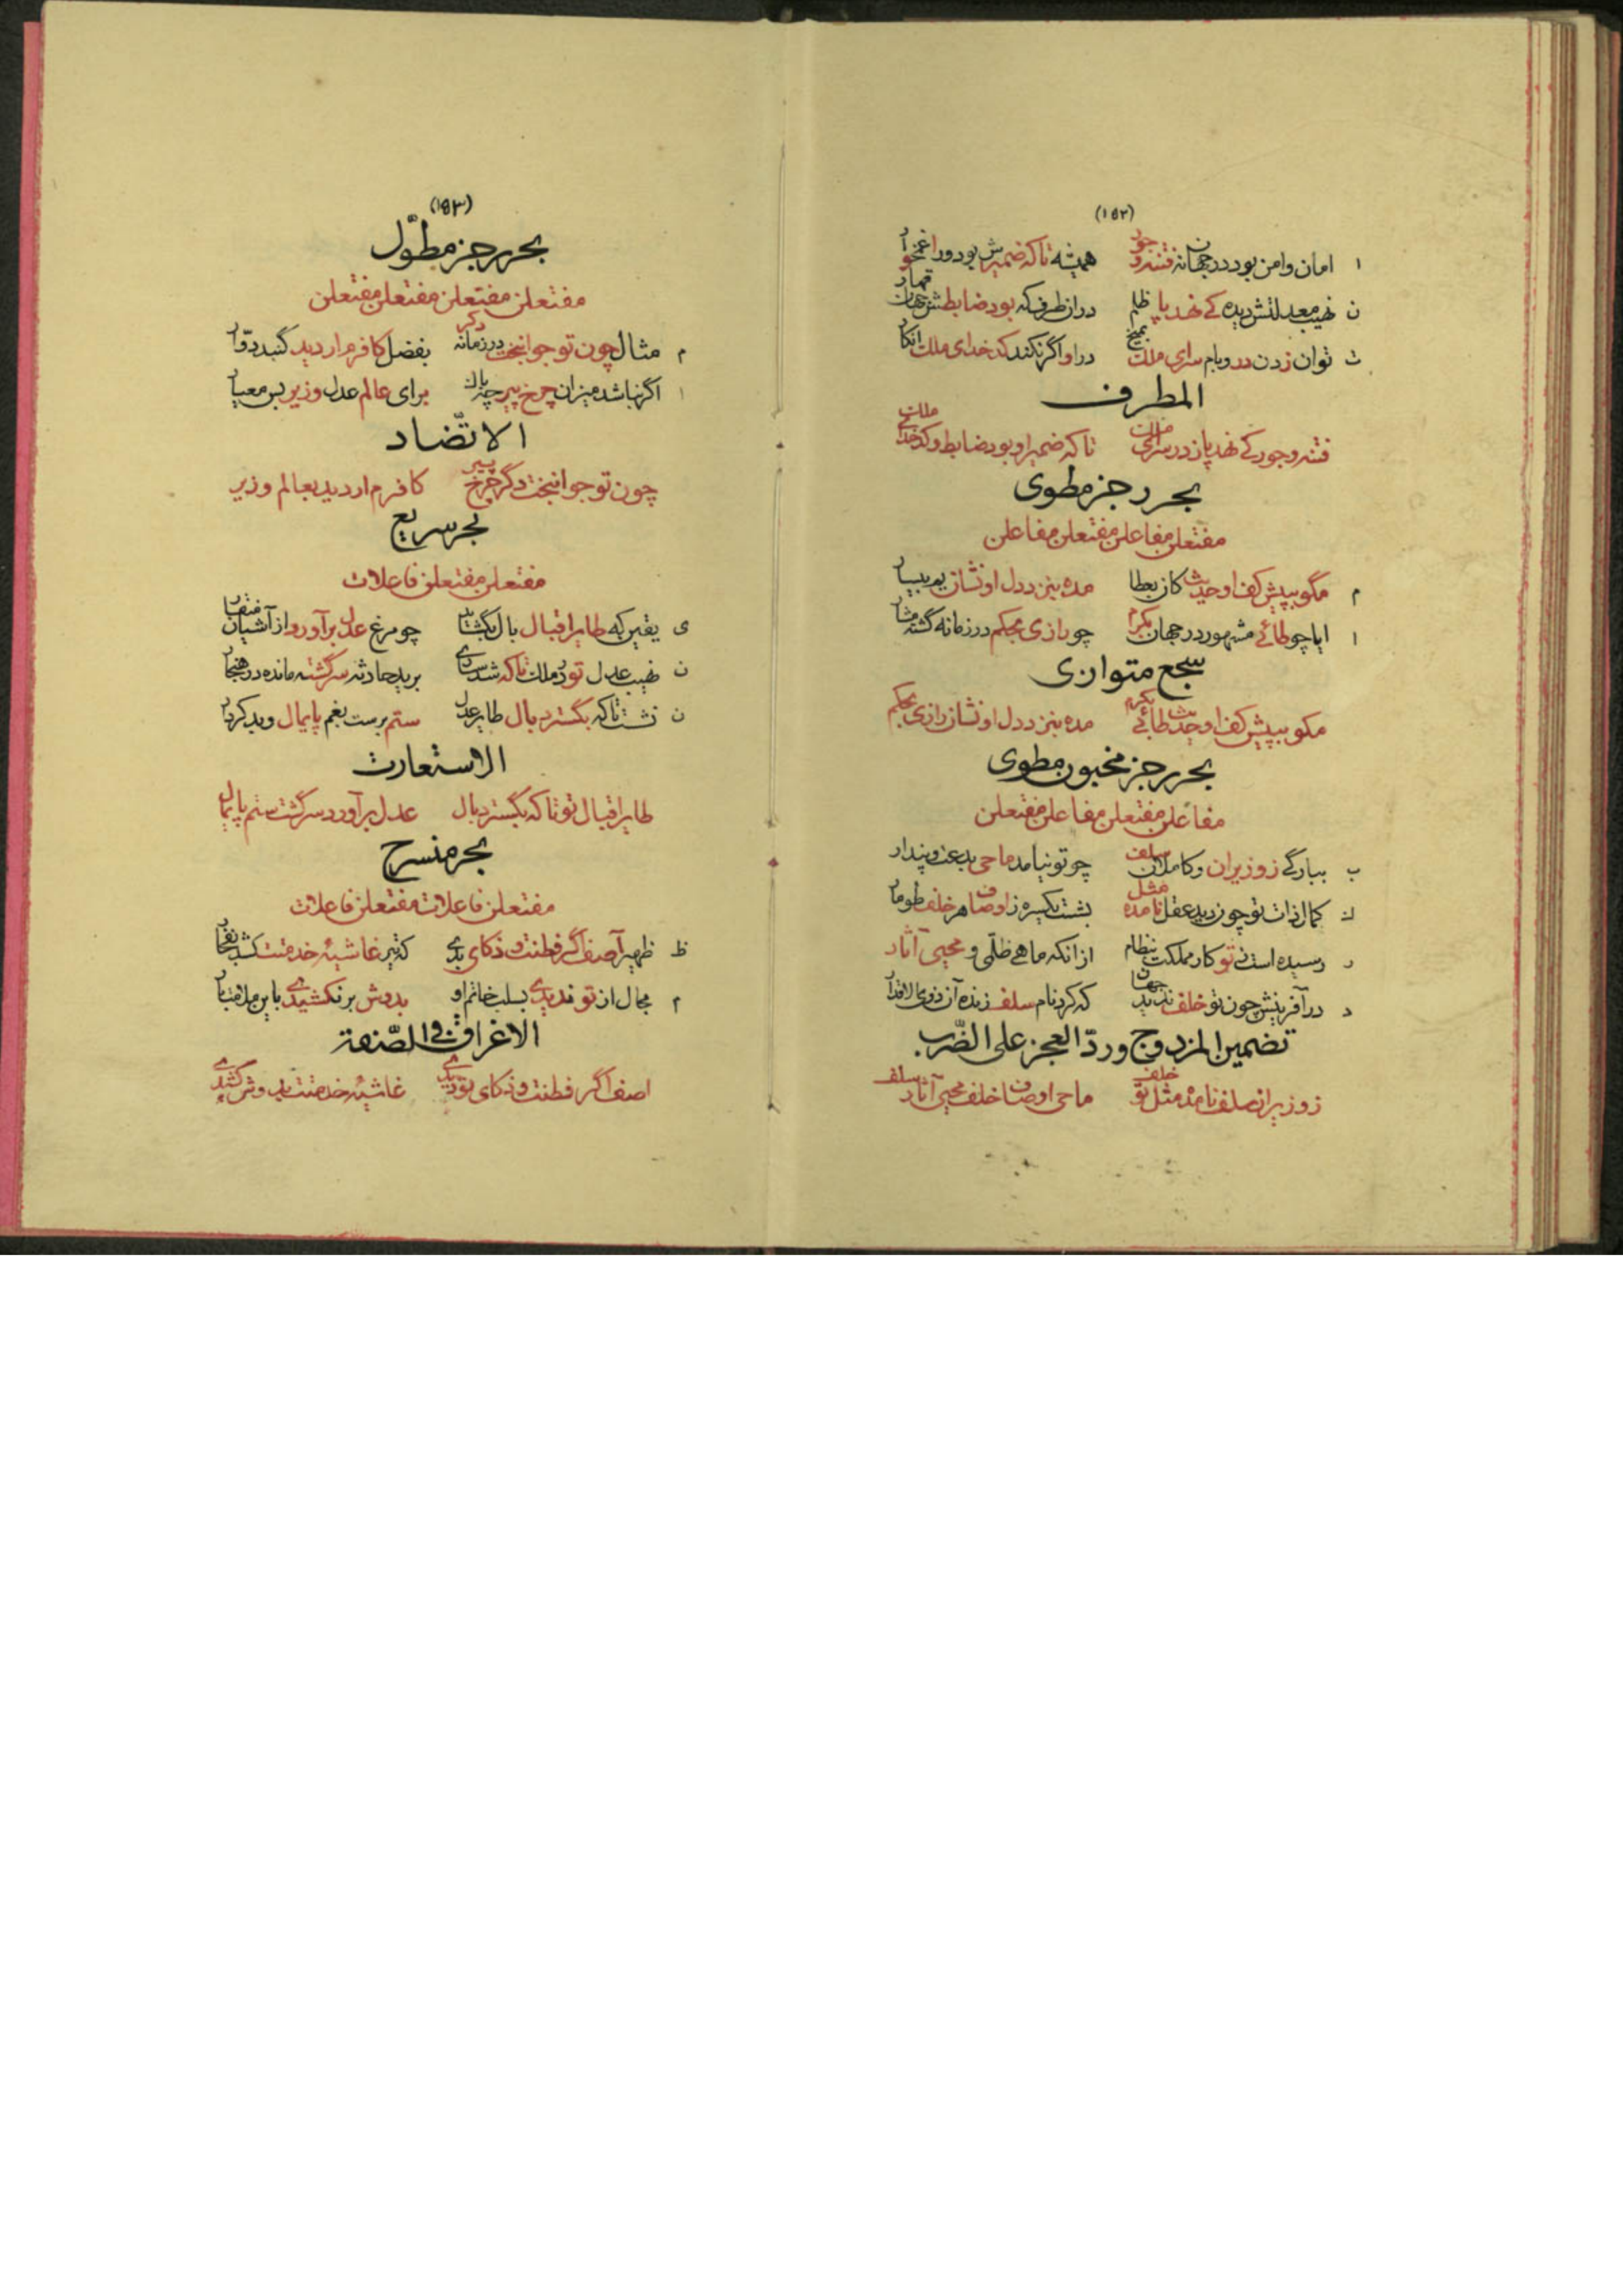 (۱۵۲)
ا امان و امن بود در جهان نه فتنه و جور همیشه تا که ضمیرش بود ورا غمخوار
ن نهیب معدلتش دیده کے نهد پا ظلم دران طرف که بود ضابطش
ت توان زدن در و بام سرای ملک بمیخ در او اگر نکند کدخدای ملک انکار
المطرف
فتنه و جور کے نهد پا در سرای ملک تا که ضمیر او بود ضابط و کدخدای ملک
بحر رجز مطوی
مفتعلن مفاعلن مفتعلن مفاعلن
م مگو بپیش کف او حدیث کان بعطا مده بنزد دل او نشان یم بیسار
ا ایا چو طائے مشهور در جهان بکرم چو رازی بحکم در زمانه گشته مشار
سجع متوازی
مکو بپیش کف او حدیث طائے بکرم مده بنزد دل او نشان رازی بحکم
بحر رجز مخبون مطوی
مفاعلن مفتعلن مفاعلن مفتعلن
ب ببارگے ز وزیران و کاملان سلف چو تو نیامد ماحی بدعت و پندار
ك کمال ذات تو چون دید عقل نامده مثل بشست یکسره ز اوصاف هر خلف طومار
ر رسیده است ز تو کار مملکت بنظام ازانکه ماهے ظلمی و محیی آثار
د در آفرینش چون تو خلف ندید جهان که کرد نام سلف زنده آن ذوی الاقدار
تضمین المزدوج و ردّ العجز علی الضّرب
ز وزیران سلف نامد مثل تو خلف ماحی اوصاف خلف محیی آثار سلف
(۱۵۳)
بحر رجز مطوّل
مفتعلن مفتعلن مفتعلن مفتعلن
م مثال چون تو جوانبخت در زمانه دگر بفضل کافرم ار دید گنبد دوّار
ا اگر نباشد میزان چرخ پیر چه باك برای عالم عدل وزیر بس معیار
الاتّضاد
چون تو جوانبخت دگر چرخ پیر کافرم ار دید بعالم وزیر
بحر سریع
مفتعلن مفتعلن فاعلات
ی یقین که طایر اقبال بال بگشاید چو مرغ عدل برآورد از آشیان منقار
ن نهیب عدل تو در ملك تا که شد ساری برید حادثه سرگشته مانده در هنجار
ن نشست تا که بگسترد بال طایر عدل ستم پرست بغم پایمال و بد کردار
الاستعارت
طایر اقبال تو تا که بگسترد بال عدل برآورد سر گشت ستم پایمال
بحر منسرح
مفتعلن فاعلات مفتعلن فاعلات
ظ ظهیر آصف اگر فطنت و ذکای بدی غاشیهٔ خدمتت
م مجال از تو ندیدی بسلب خاتم او بدوش بر نکشیدی
الاغراق فی الصّنعة
اصف اگر فطنت و ذکای تو دیدی غاشیهٔ خدمتت بدوش کشیدی